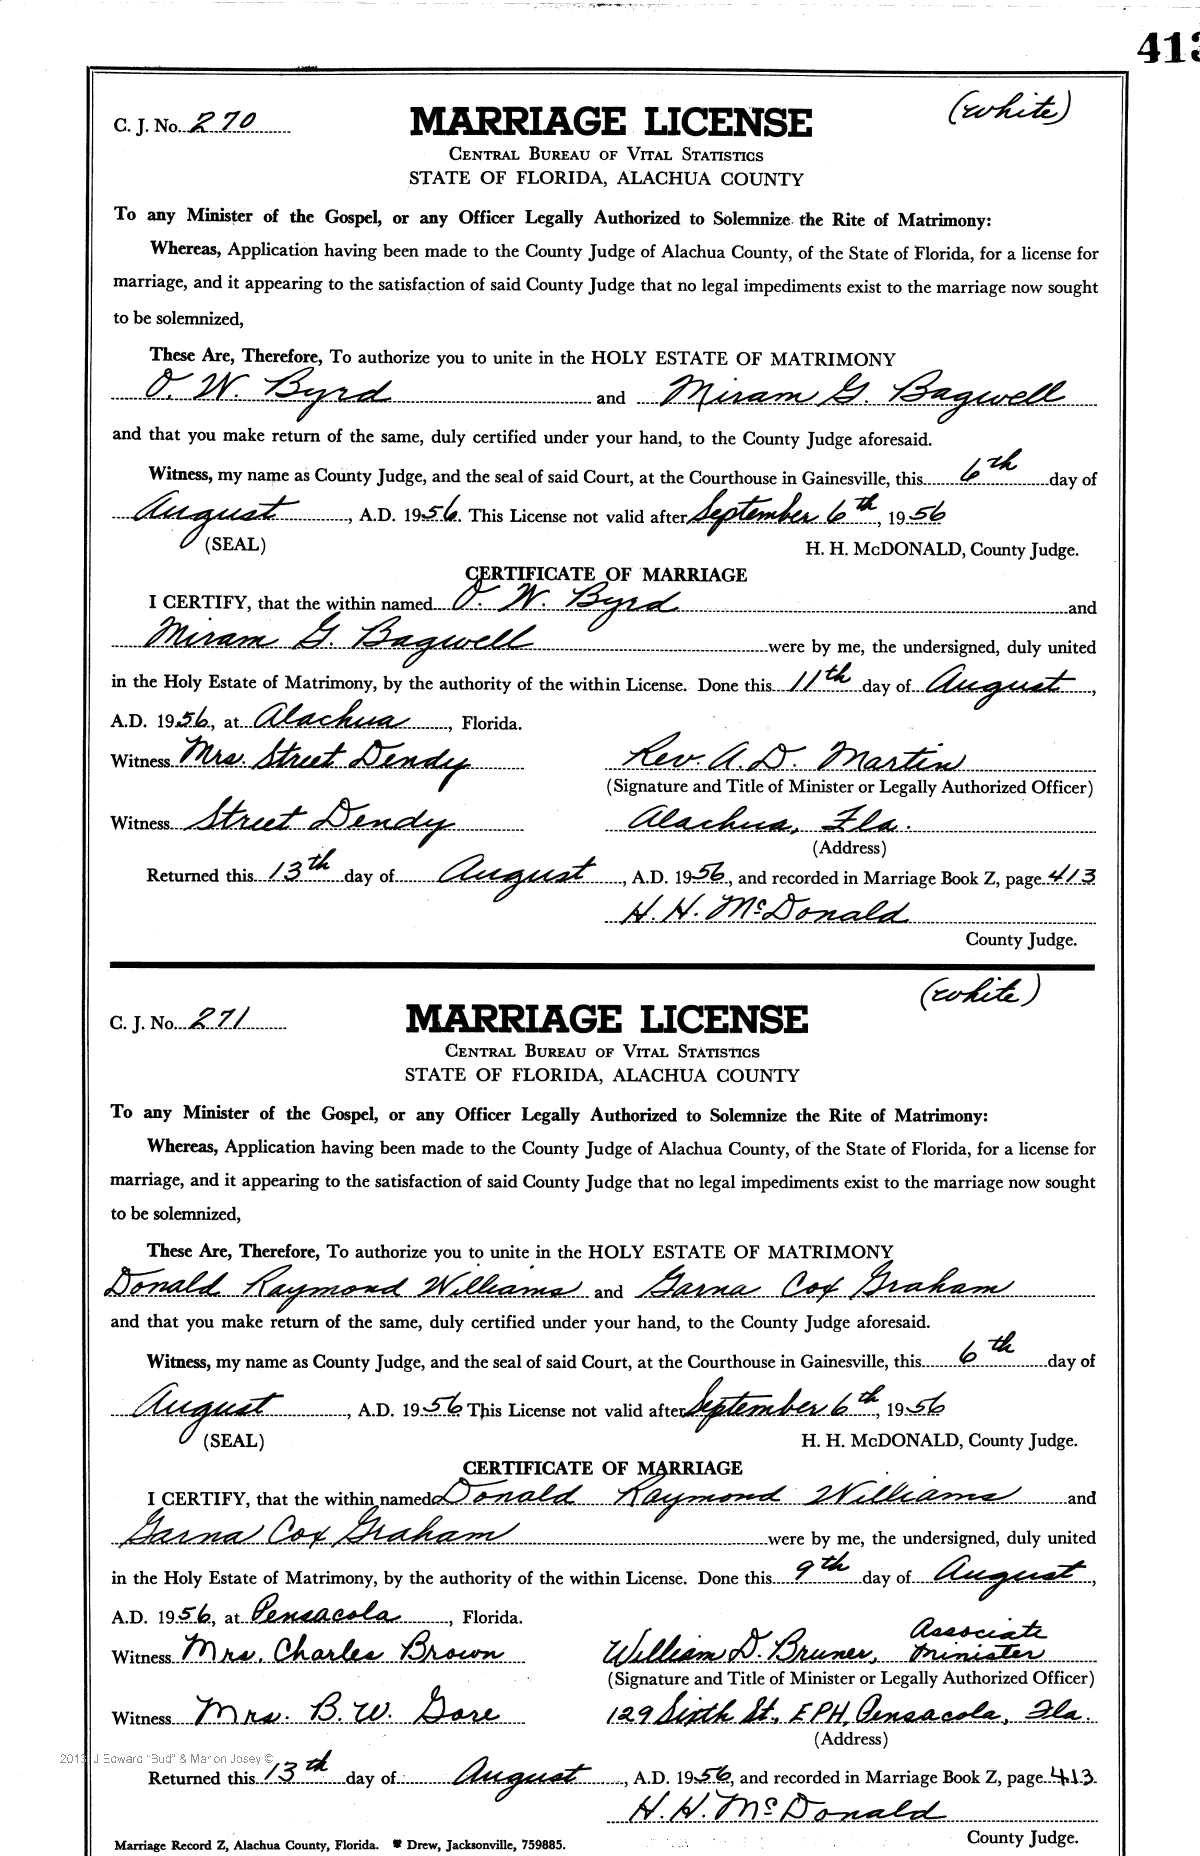 413
C. J. No. 270
MARRIAGE LICENSE
(white)
CENTRAL BUREAU OF VITAL STATISTICS
STATE OF FLORIDA, ALACHUA COUNTY
To any Minister of the Gospel, or any Officer Legally Authorized to Solemnize the Rite of Matrimony:
Whereas, Application having been made to the County Judge of Alachua County, of the State of Florida, for a license for
marriage, and it appearing to the satisfaction of said County Judge that no legal impediments exist to the marriage now sought
to be solemnized,
These Are, Therefore, To authorize you to unite in the HOLY ESTATE OF MATRIMONY
O. W. Byrd and Miram G. Bagwell
and that you make return of the same, duly certified under your hand, to the County Judge aforesaid.
Witness, my name as County Judge, and the seal of said Court, at the Courthouse in Gainesville, this 6th day of
August, A.D. 1956. This License not valid after September 6th, 1956
(SEAL) H. H. McDONALD, County Judge.
CERTIFICATE OF MARRIAGE
I CERTIFY, that the within named O. W. Byrd and
Miram G. Bagwell were by me, the undersigned, duly united
in the Holy Estate of Matrimony, by the authority of the within License. Done this 11th day of August,
A.D. 1956, at Alachua, Florida.
Witness Mrs. Street Dendy Rev. A. D. Martin
(Signature and Title of Minister or Legally Authorized Officer)
Witness Street Dendy Alachua, Fla.
(Address)
Returned this 13th day of August, A.D. 1956, and recorded in Marriage Book Z, page 413
H. H. McDonald
County Judge.
(white)
C. J. No. 271
MARRIAGE LICENSE
CENTRAL BUREAU OF VITAL STATISTICS
STATE OF FLORIDA, ALACHUA COUNTY
To any Minister of the Gospel, or any Officer Legally Authorized to Solemnize the Rite of Matrimony:
Whereas, Application having been made to the County Judge of Alachua County, of the State of Florida, for a license for
marriage, and it appearing to the satisfaction of said County Judge that no legal impediments exist to the marriage now sought
to be solemnized,
These Are, Therefore, To authorize you to unite in the HOLY ESTATE OF MATRIMONY
Donald Raymond Williams and Garna Cox Graham
and that you make return of the same, duly certified under your hand, to the County Judge aforesaid.
Witness, my name as County Judge, and the seal of said Court, at the Courthouse in Gainesville, this 6th day of
August, A.D. 1956 This License not valid after September 6th, 1956
(SEAL) H. H. McDONALD, County Judge.
CERTIFICATE OF MARRIAGE
I CERTIFY, that the within named Donald Raymond Williams and
Garna Cox Graham were by me, the undersigned, duly united
in the Holy Estate of Matrimony, by the authority of the within License. Done this 9th day of August,
A.D. 1956, at Pensacola, Florida.
Witness Mrs. Charles Brown William D. Bruner, Associate Minister
(Signature and Title of Minister or Legally Authorized Officer)
Witness Mrs. B. W. Gore 129 Sixth St., EPH, Pensacola, Fla.
(Address)
2013 J Edward "Bud" & Marion Josey ©
Returned this 13th day of August, A.D. 1956, and recorded in Marriage Book Z, page 413
H. H. McDonald
County Judge.
Marriage Record Z, Alachua County, Florida. Drew, Jacksonville, 759885.